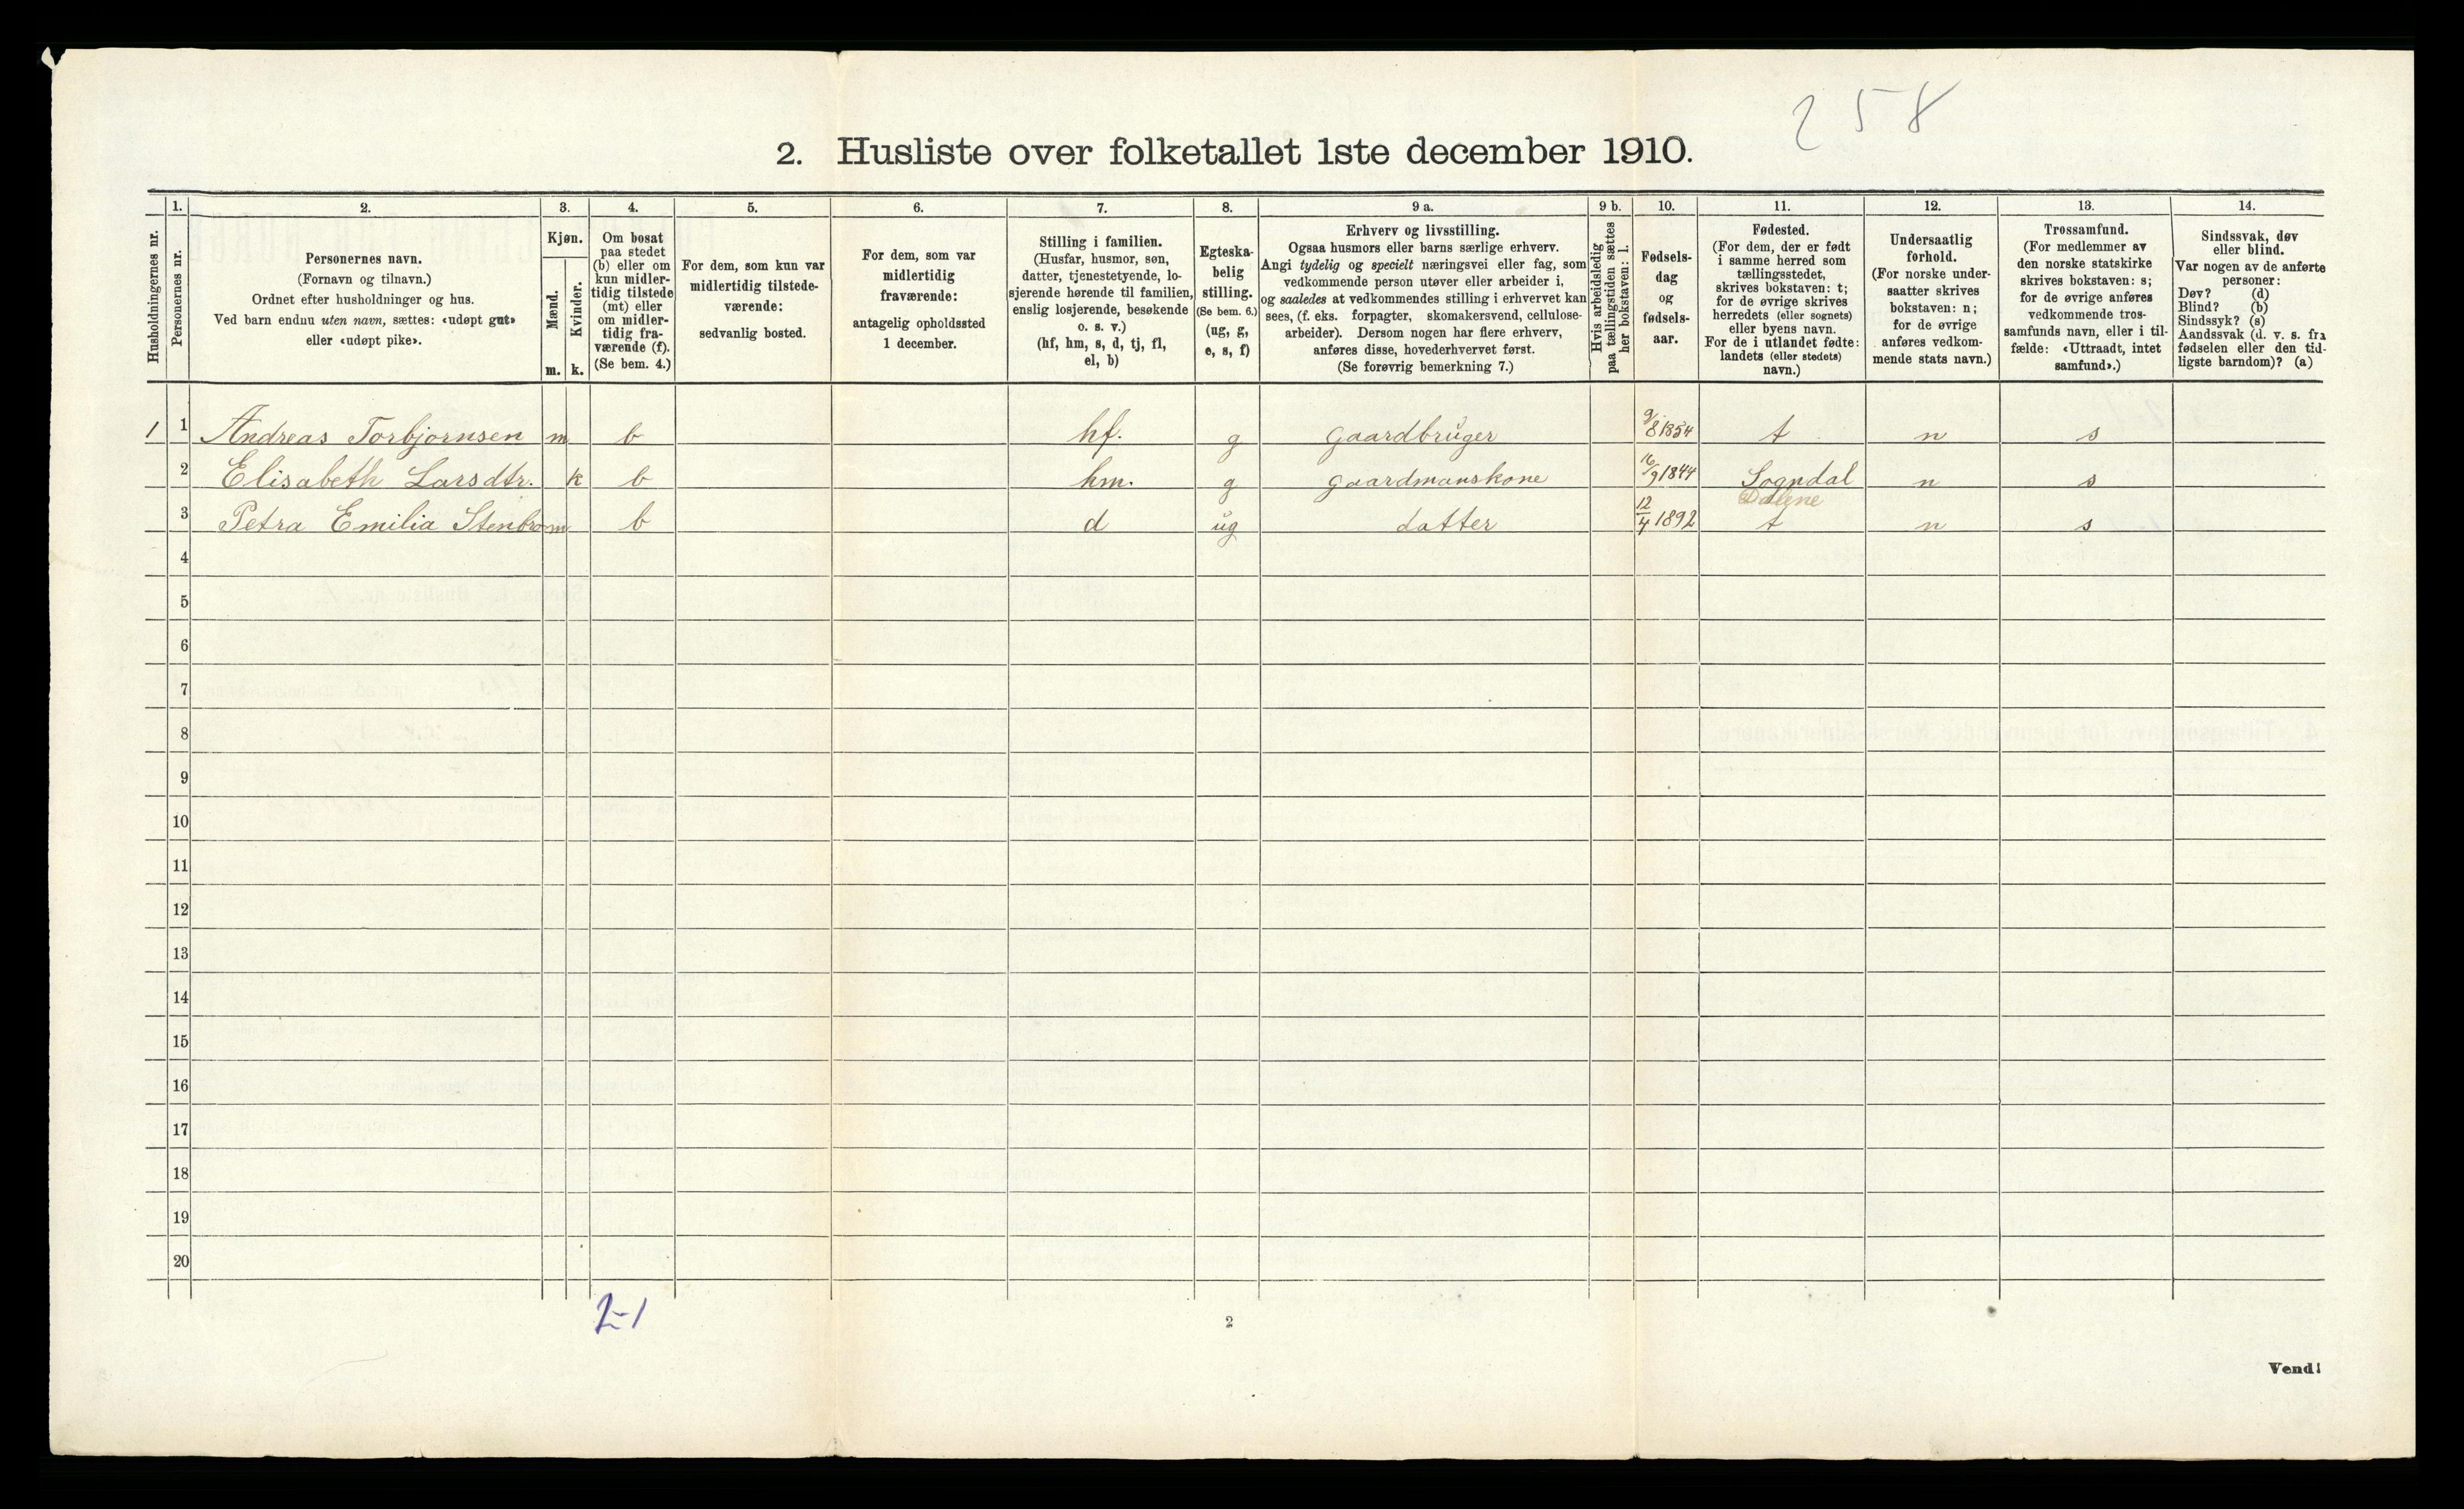 258
2. Husliste over folketallet 1ste december 1910.
Husholdningernes nr.
1.
Personernes nr.
2.
Personernes navn.
(Fornavn og tilnavn.)
Ordnet efter husholdninger og hus.
Ved barn endnu uten navn, sættes: «udøpt gut»
eller «udøpt pike».
3.
Kjøn.
Mænd.
m.
Kvinder.
k.
4.
Om bosat
paa stedet
(b) eller om
kun midler-
tidig tilstede
(mt) eller
om midler-
tidig fra-
værende (f).
(Se bem. 4.)
5.
For dem, som kun var
midlertidig tilstede-
værende:
sedvanlig bosted.
6.
For dem, som var
midlertidig
fraværende:
antagelig opholdssted
1 december.
7.
Stilling i familien.
(Husfar, husmor, søn,
datter, tjenestetyende, lo-
sjerende hørende til familien,
enslig losjerende, besøkende
o. s. v.)
(hf, hm, s, d, tj, fl,
el, b)
8.
Egteska-
belig
stilling.
(Se bem. 6.)
(ug, g,
e, s, f)
9 a.
Erhverv og livsstilling.
Ogsaa husmors eller barns særlige erhverv.
Angi tydelig og specielt næringsvei eller fag, som
vedkommende person utøver eller arbeider i,
og saaledes at vedkommendes stilling i erhvervet kan
sees, (f. eks. forpagter, skomakersvend, cellulose-
arbeider). Dersom nogen har flere erhverv,
anføres disse, hovederhvervet først.
(Se forøvrig bemerkning 7.)
9 b.
Hvis arbeidsledig
paa tællingstiden sættes
her bokstaven: l.
10.
Fødsels-
dag
og
fødsels-
aar.
11.
Fødested.
(For dem, der er født
i samme herred som
tællingsstedet,
skrives bokstaven: t;
for de øvrige skrives
herredets (eller sognets)
eller byens navn.
For de i utlandet fødte:
landets (eller stedets)
navn.)
12.
Undersaatlig
forhold.
(For norske under-
saatter skrives
bokstaven: n;
for de øvrige
anføres vedkom-
mende stats navn.)
13.
Trossamfund.
(For medlemmer av
den norske statskirke
skrives bokstaven: s;
for de øvrige anføres
vedkommende tros-
samfunds navn, eller i til-
fælde: «Uttraadt, intet
samfund».)
14.
Sindssvak, døv
eller blind.
Var nogen av de anførte
personer:
Døv? (d)
Blind? (b)
Sindssyk? (s)
Aandssvak (d. v. s. fra
fødselen eller den tid-
ligste barndom)? (a)
1 1 Andreas Torbjørnsen m b hf. g Gaardbrüger 9/8 1854 t n s
2 Elisabeth Larsdtr. k b hm. g gaardmanskone 16/9 1844 Sogndal n s
Dalene
3 Petra Emilia Stenbro m b d üg datter 12/4 1892 t n s
4
5
6
7
8
9
10
11
12
13
14
15
16
17
18
19
20
2-1
2
Vend!